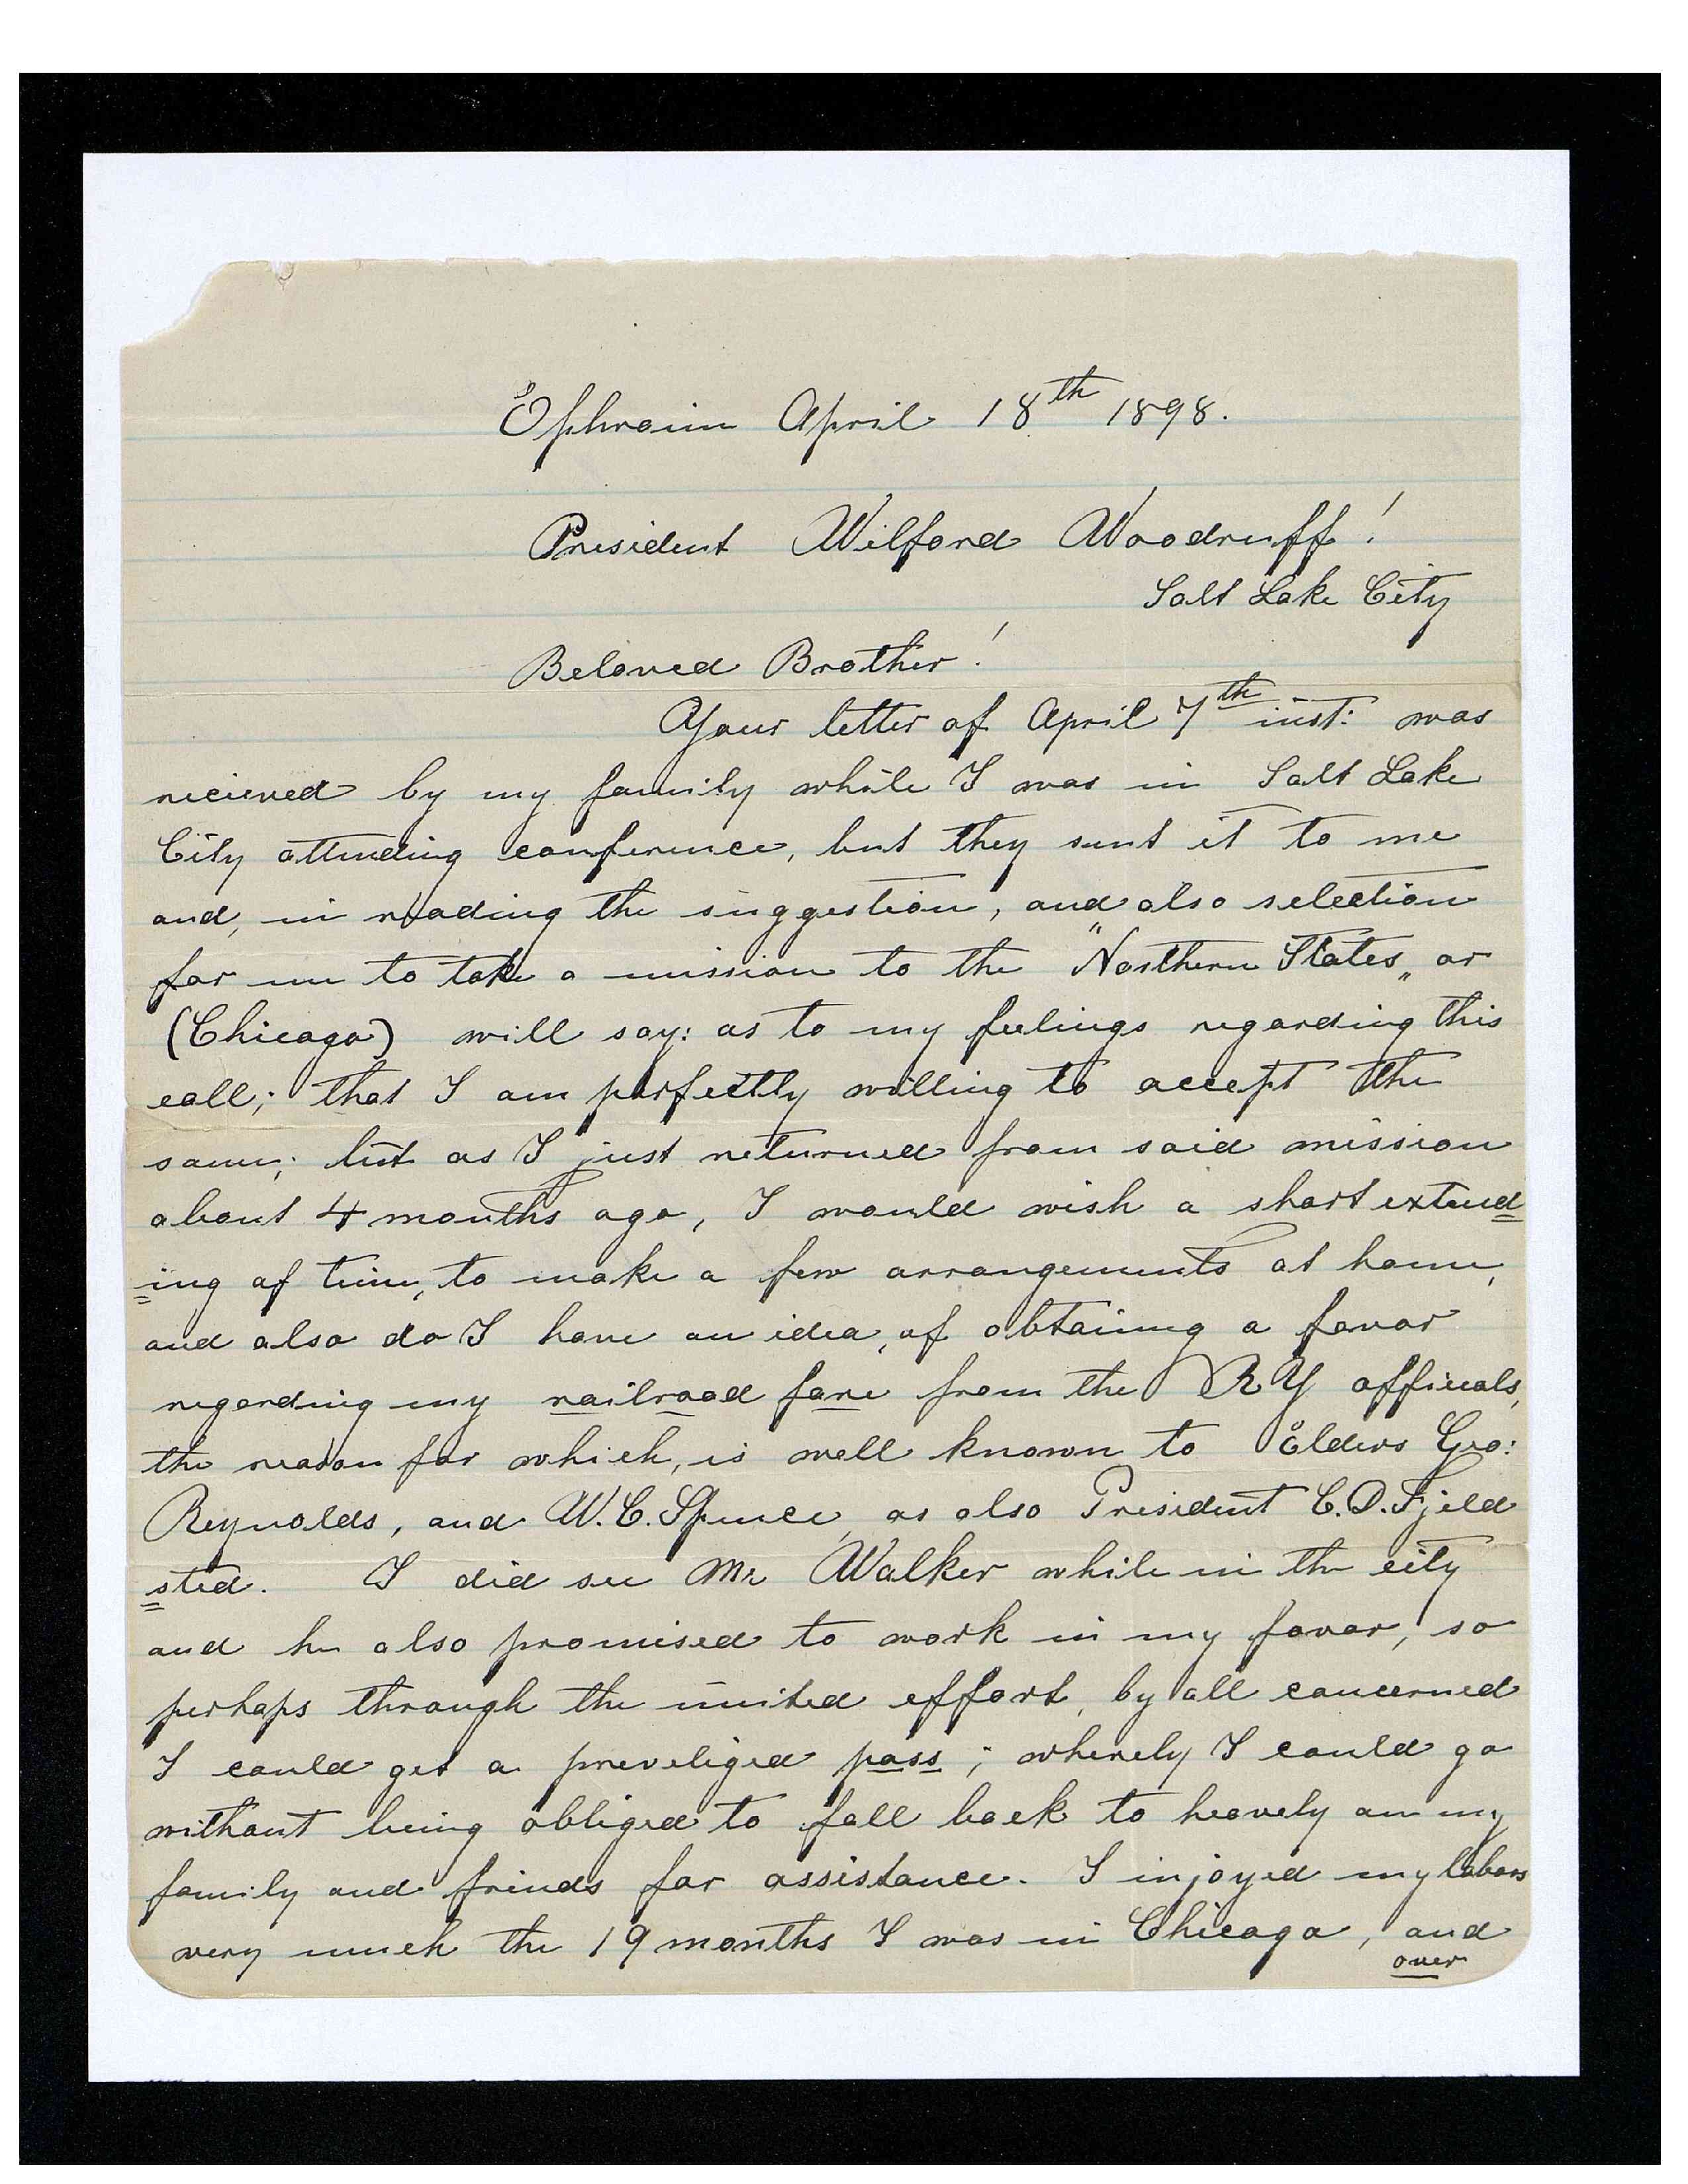 Ephraim April 18th 1898.
President Wilford Woodruff!
Salt Lake City
Beloved Brother!
Your letter of April 7th inst: was
recieved by my family while I was in Salt Lake
City attending conference, but they sent it to me
and, in reading the suggestion, and also selection
for me to take a mission to the "Northern States„ or
(Chicago) will say: as to my feelings regarding this
call; that I am perfectly willing to accept the
same; but as I just returned from said mission
about 4 months ago, I would wish a short extend=
=ing of time, to make a few arrangements at home,
and also do I have an idea, of obtaining a favor
regarding my railroad fare from the RY officials,
the reason for which, is well known to Elders Geo:
Reynolds, and W.C. Spence, as also President C.D. Fjeld
sted. I did see Mr Walker while in the city
and he also promised to work in my favor, so
perhaps through the united effort, by all concerned
I could get a preveliged pass; whereby I could go
without being obliged to fall back to heavely on my
family and frinds for assistance. I injoyed my labors
very much the 19 months I was in Chicago, and
over